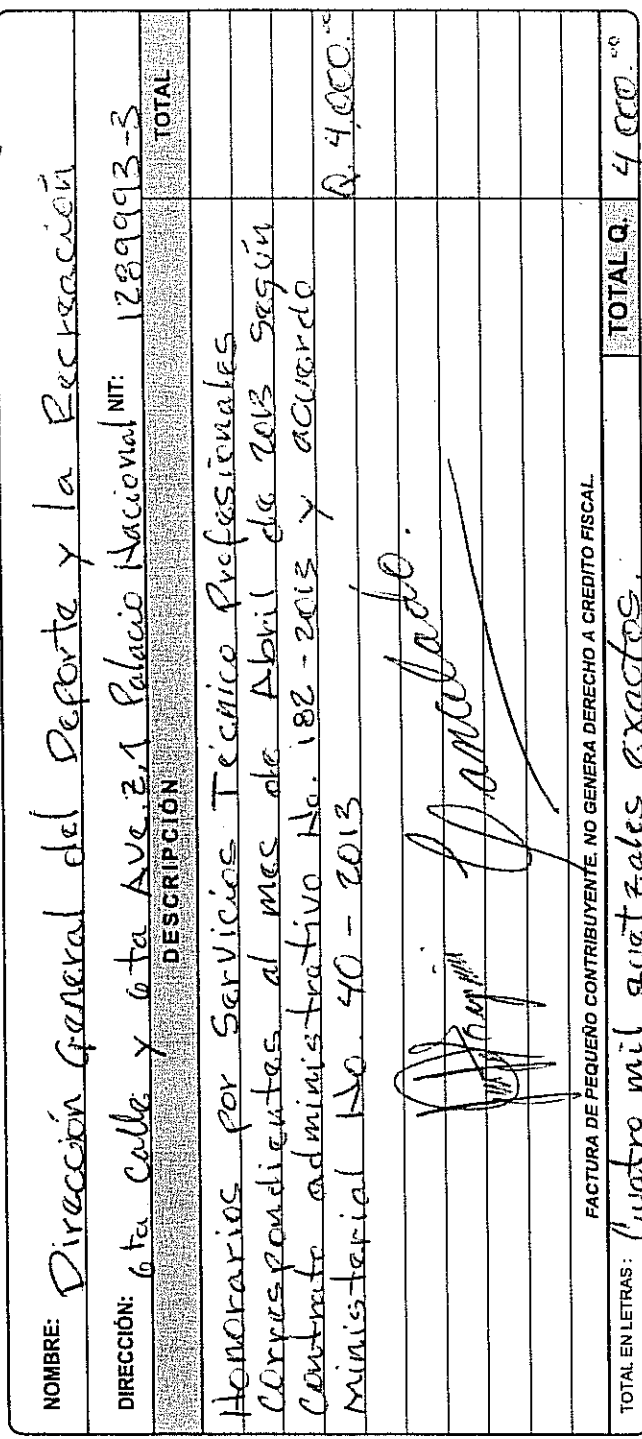 NOMBRE: Dirección General del Deporte y la Recreación
DIRECCIÓN: 6ta calle y 6ta Ave. Z.1 Palacio Nacional NIT: 1289993-3
DESCRIPCIÓN TOTAL
Honorarios por Servicios Técnico Profesionales
correspondientes al mes de Abril de 2013 según
contrato administrativo No. 182-2013 y acuerdo
ministerial No. 40-2013 Q. 4,000.00
Cancelado.
FACTURA DE PEQUEÑO CONTRIBUYENTE, NO GENERA DERECHO A CREDITO FISCAL.
TOTAL EN LETRAS: Cuatro mil quetzales exactos. TOTAL Q. 4 000.00